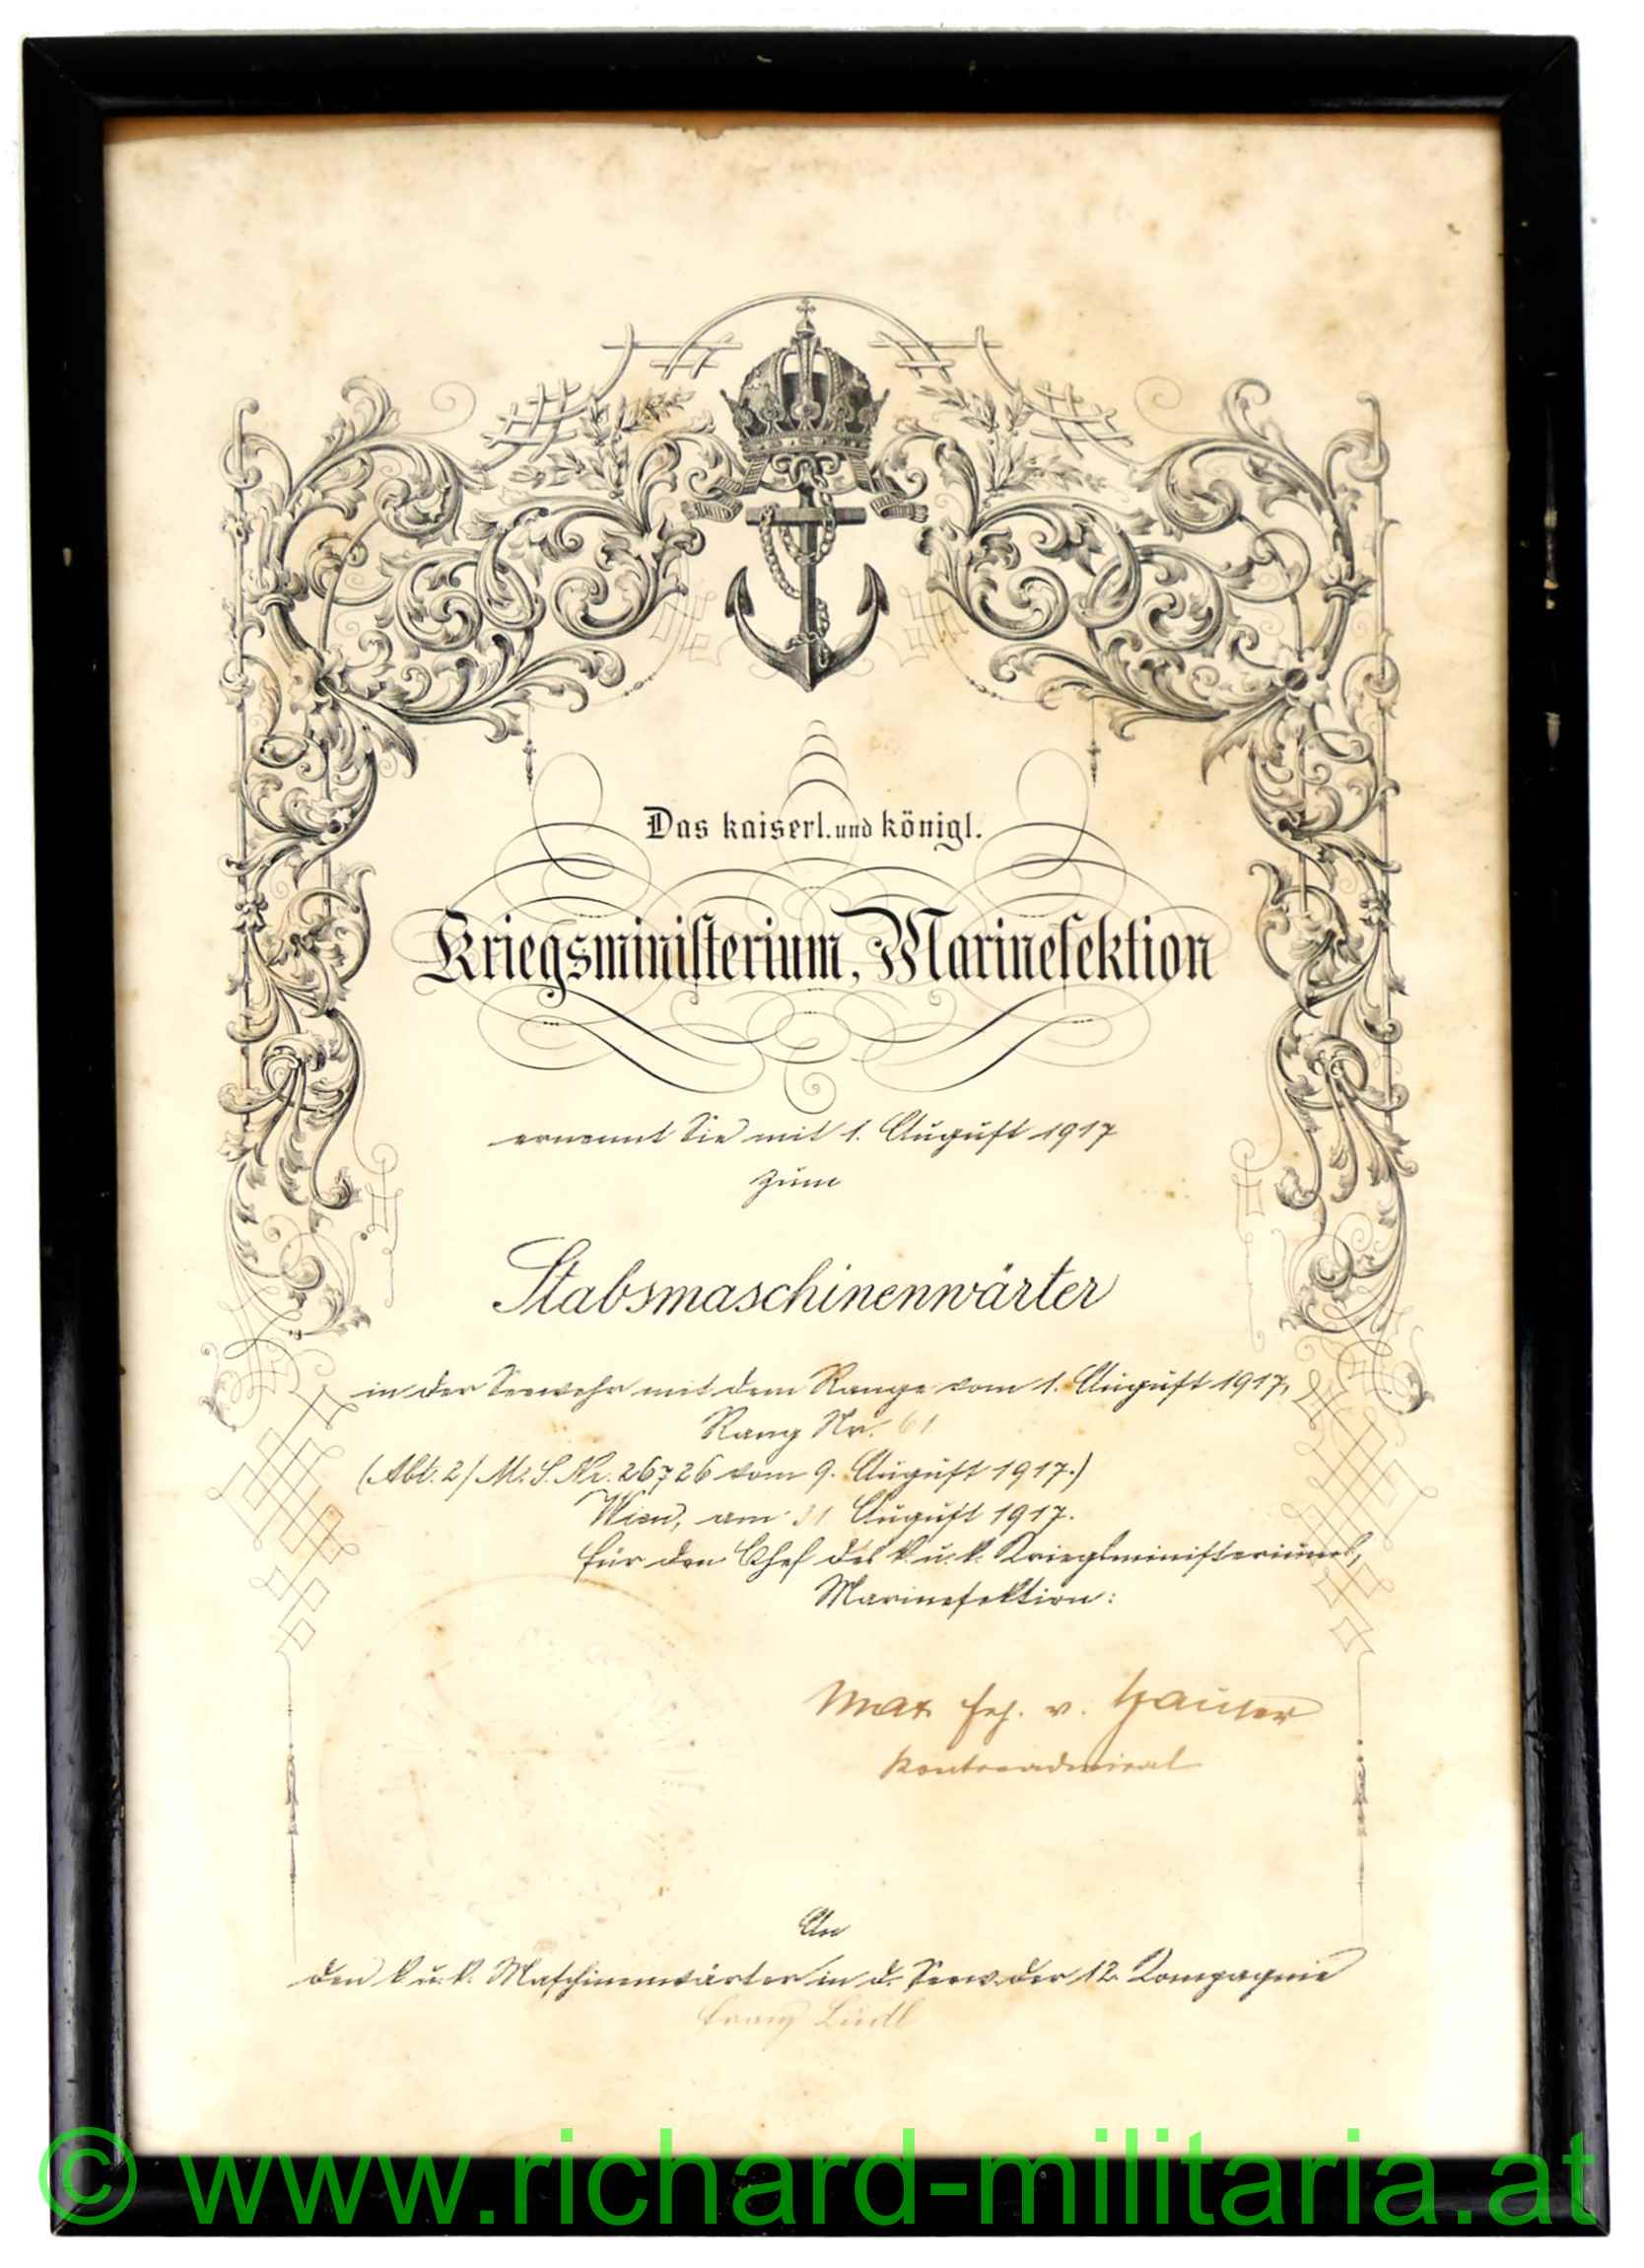 Das kaiserl. und königl.
Kriegsministerium, Marinesektion
ernennt Sie mit 1. August 1917
zum
Stabsmaschinenwärter
in der Seewehr mit dem Range vom 1. August 1917,
Rang Nr. 61
(Abt. 2/M. S. Nr. 26726 vom 9. August 1917.)
Wien, am 31 August 1917.
Für den Chef des k. u. k. Kriegsministeriums,
Marinesektion:
Max Frh. v.
Kontreadmiral
An
den k. u. k. Maschinenwärter in d. Seew. der 12. Kompagnie
Franz
© www.richard-militaria.at